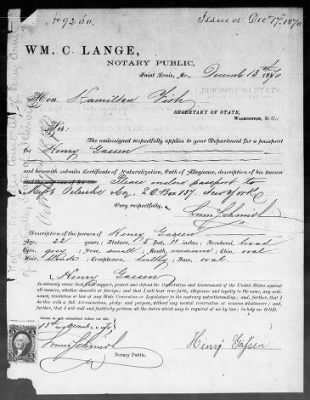 No 9260.
Issued Decr 17th 1870
WM. C. LANGE,
NOTARY PUBLIC.
Saint Louis, Mo., December 13th 1870.
Hon. Hamilton Fish
SECRETARY OF STATE,
WASHINGTON, D. C.:
Sir:
The undersigned respectfully applies to your Department for a passport
for Henry Gassen
and herewith submits Certificate of Naturalization, Oath of Allegiance, description of his person
Please enclose passport to
P.O. Box 137 New York
Very respectfully,
Louis Schmidt
Description of the person of Henry Gassen
Age, 22 years; Stature, 5 feet, 11 inches; Forehead, broad
Eyes, grey; Nose, small; Mouth, ; Chin, oval
Hair, blonde; Complexion, healthy; Face, oval
I, Henry Gassen
do solemnly swear that I will support, protect and defend the Constitution and Government of the United States against
all enemies, whether domestic or foreign; and that I will bear true faith, allegiance and loyalty to the same, any ordi-
nance, resolution or law of any State Convention or Legislature to the contrary notwithstanding; and, further, that I
do this with a full determination, pledge and purpose, without any mental reservation or evasion whatsoever; and
further, that I will well and faithfully perform all the duties which may be required of me by law: so help me GOD.
Sworn to and subscribed before me, this
13th day of December 1870
Louis Schmidt
Notary Public.
Henry Gassen